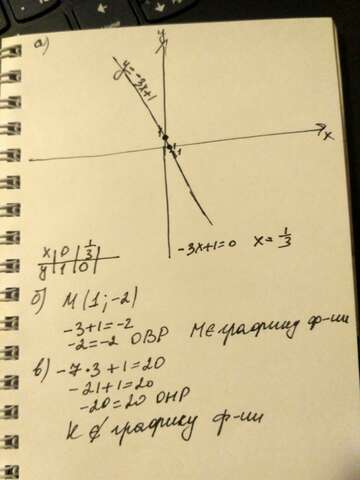 а)
y
y=-3x+1
1
1/3
1
x
x | 0 | 1/3
y | 1 | 0
-3x+1=0 x=1/3
б) М(1;-2)
-3+1=-2
-2=-2 ОВР М∈графику ф-ии
в) -7·3+1=20
-21+1=20
-20=20 ОНР
К∉графику ф-ии